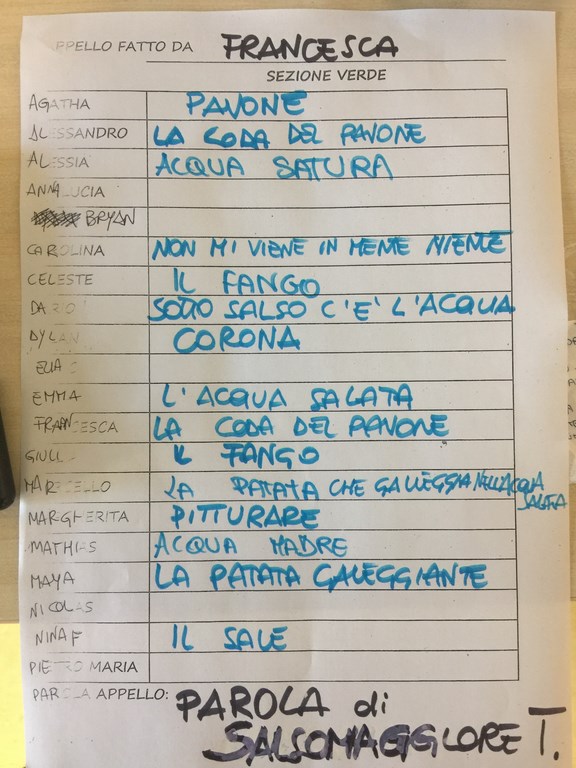 APPELLO FATTO DA FRANCESCA
SEZIONE VERDE
AGATHA PAVONE
ALESSANDRO LA CODA DEL PAVONE
ALESSIA ACQUA SATURA
ANNALUCIA
BRYAN
CAROLINA NON MI VIENE IN MENTE NIENTE
CELESTE IL FANGO
DARIO SOTTO SALSO C'E' L'ACQUA
DYLAN CORONA
ELIA
EMMA L'ACQUA SALATA
FRANCESCA LA CODA DEL PAVONE
GIULI IL FANGO
MARCELLO LA PATATA CHE GALLEGGIA NELL'ACQUA
SALATA
MARGHERITA PITTURARE
MATHIAS ACQUA MADRE
MAYA LA PATATA GALEGGIANTE
NICOLAS
NINA F IL SALE
PIETRO MARIA
PAROLA APPELLO: PAROLA di
SALSOMAGGIORE T.